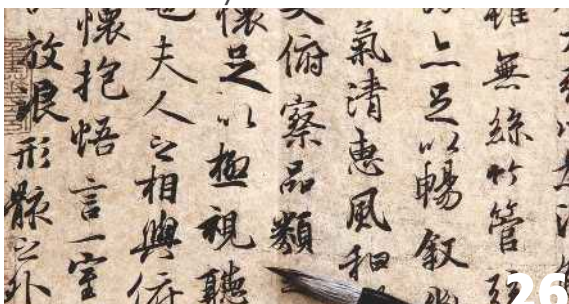 雖無絲竹管
亦足以暢叙
氣清惠風和
俯察品類之
懷足以極視聽
也夫人之相與俯
懷抱悟言一室
放浪形骸之外
26